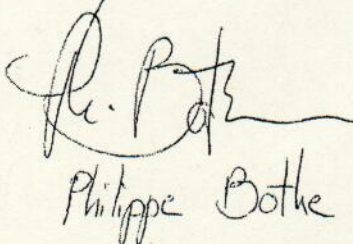 Ph. Bothe
Philippe Bothe